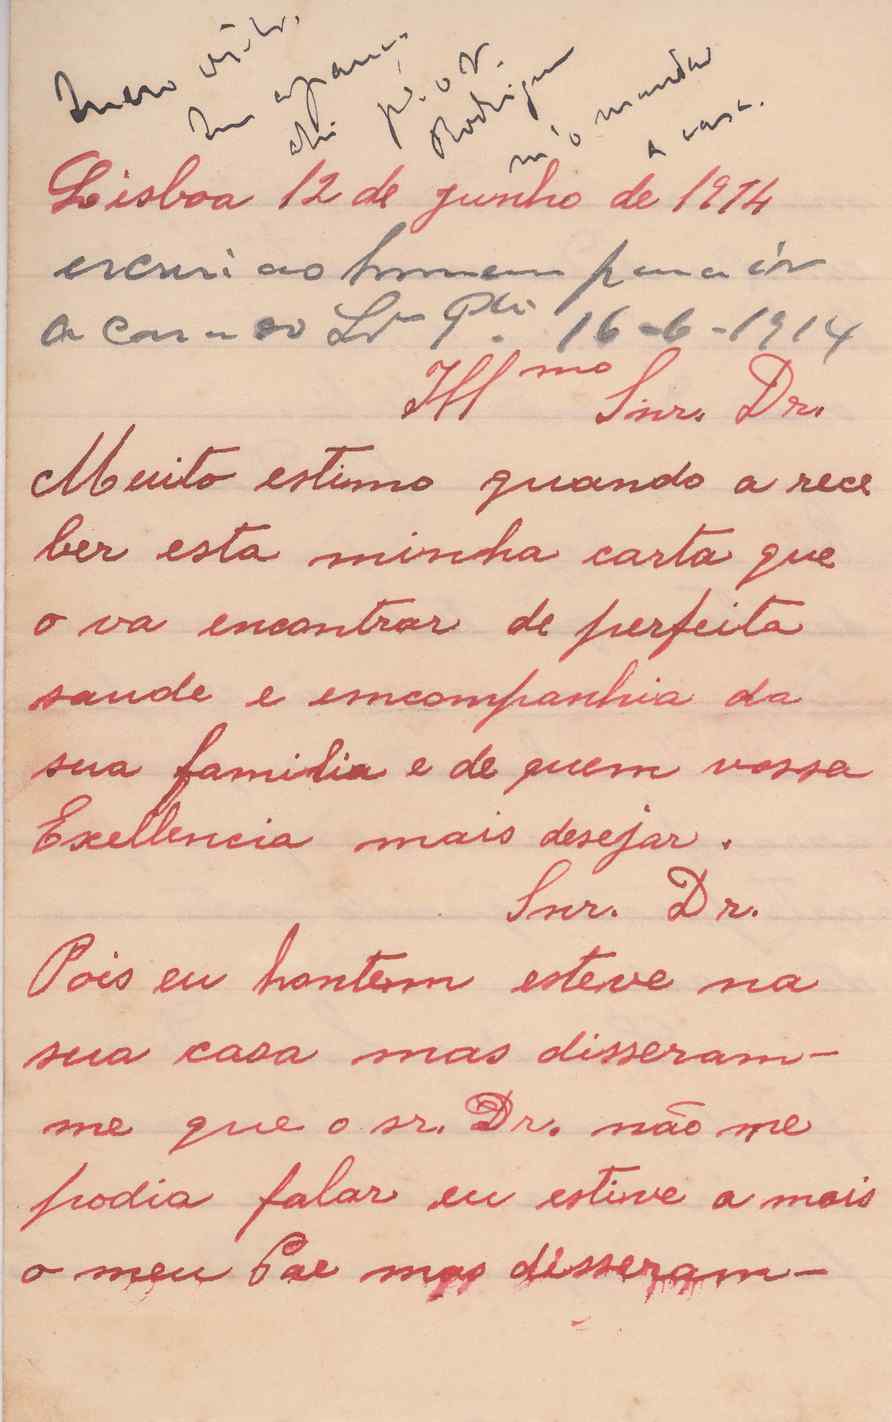 Rodrigues
não mandar
a casa.
Lisboa 12 de junho de 1914
escrevi ao homem para ir
a casa do 16-6-1914
Illmo Snr. Dr.
Muito estimo quando a rece
ber esta minha carta que
o va encontrar de perfeita
saude e emcompanhia da
sua familia e de quem vossa
Exellencia mais desejar.
Snr. Dr.
Pois eu hontem esteve na
sua casa mas disseram-
me que o sr. Dr. não me
podia falar eu estive a mais
o meu Pae mas disseram-